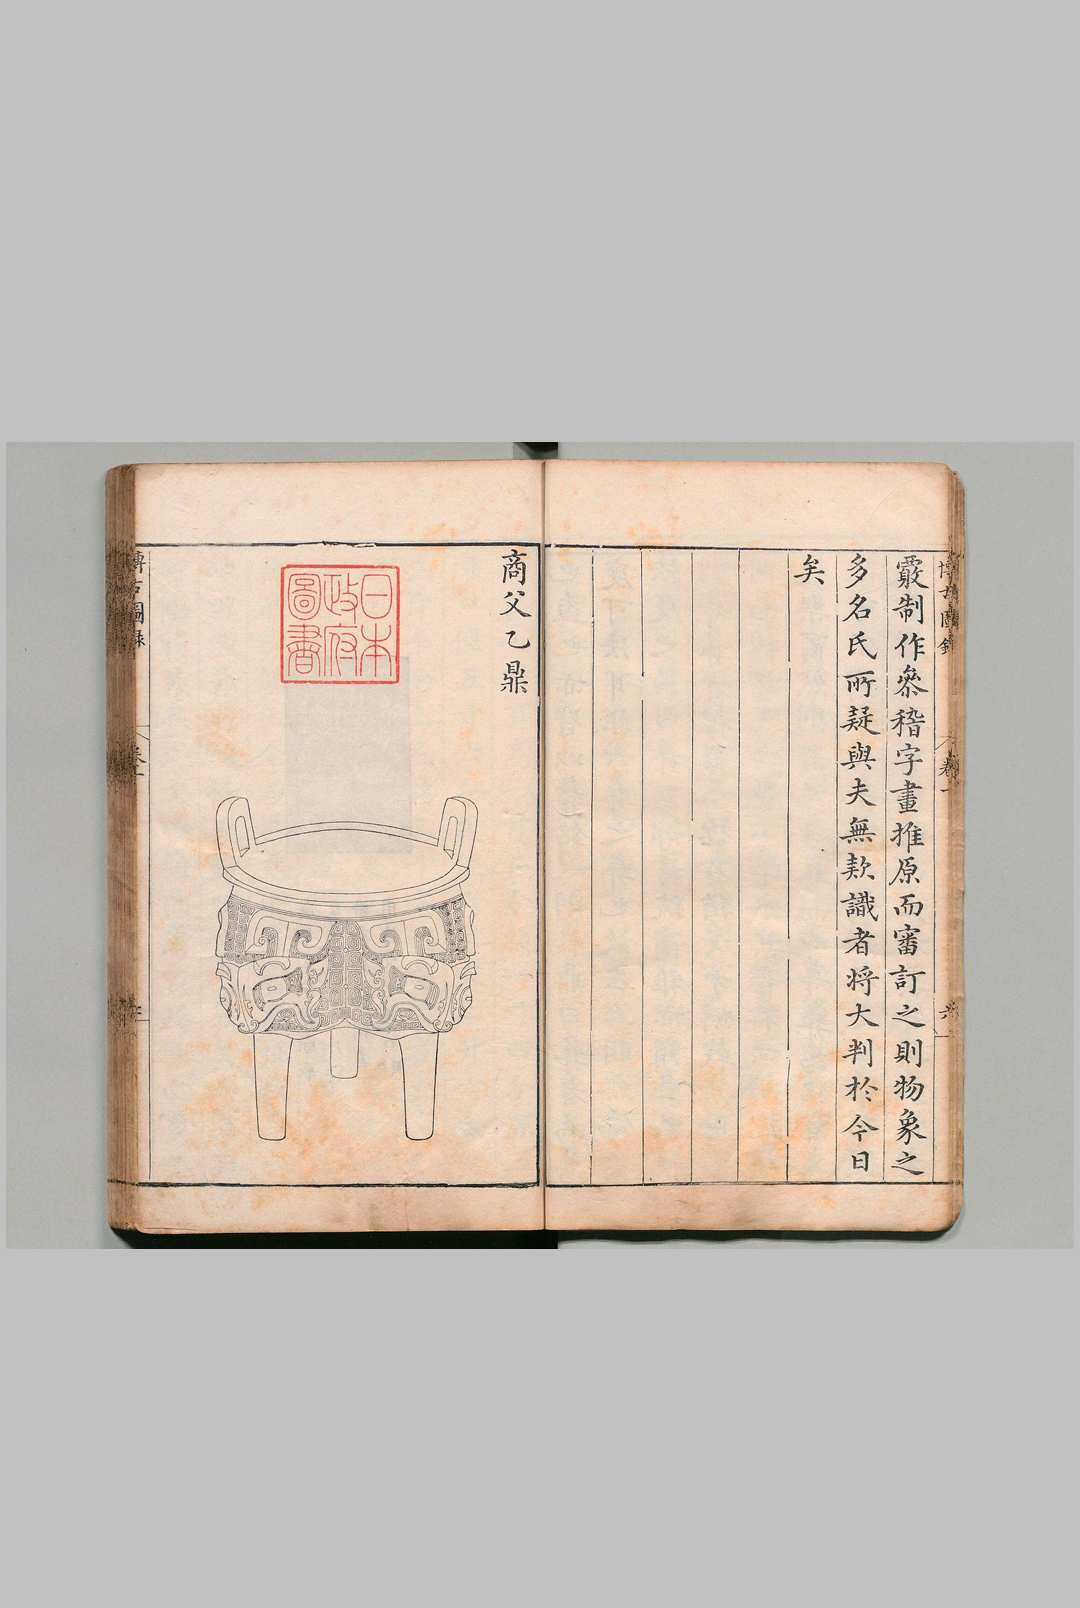 博古圖錄 卷一 六
覈制作叅稽字畫推原而審訂之則物象之
多名氏所疑與夫無款識者將大判扵今日
矣
商父乙鼎
日本
政府
圖書
博古圖錄 卷一